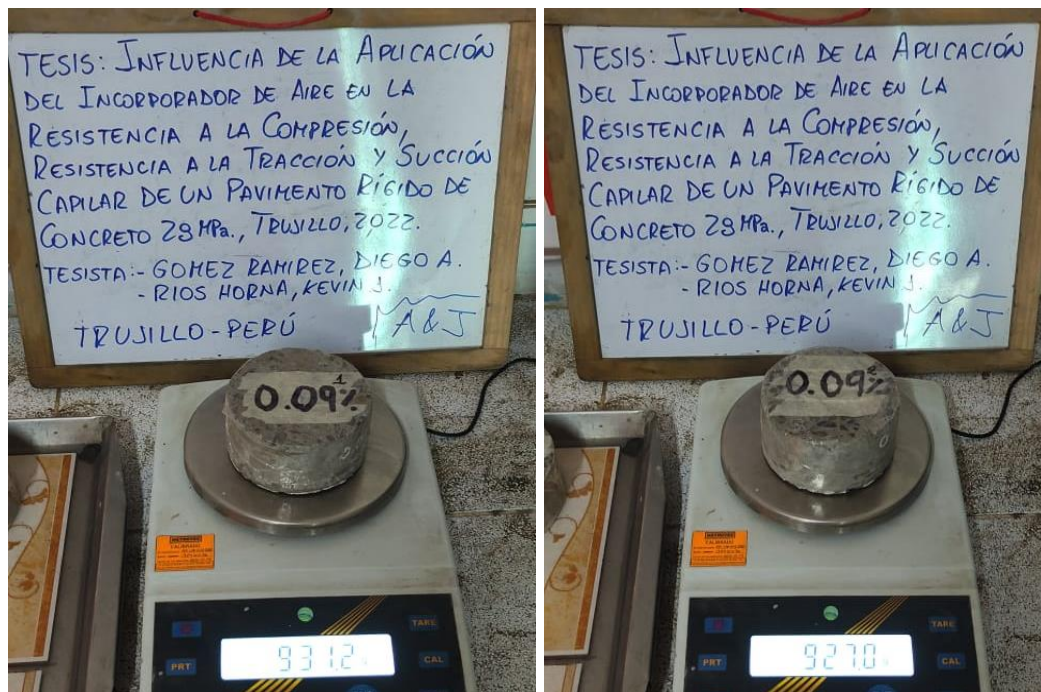 TESIS: INFLUENCIA DE LA APLICACIÓN
DEL INCORPORADOR DE AIRE EN LA
RESISTENCIA A LA COMPRESIÓN,
RESISTENCIA A LA TRACCIÓN Y SUCCIÓN
CAPILAR DE UN PAVIMENTO RÍGIDO DE
CONCRETO 28 MPa., TRUJILLO, 2022.
TESISTA:- GOMEZ RAMIREZ, DIEGO A.
- RIOS HORNA, KEVIN J.
TRUJILLO-PERÚ
A&J
1
0.09%
CALIBRADO
TARE
PRT
931.2
CAL
TESIS: INFLUENCIA DE LA APLICACIÓN
DEL INCORPORADOR DE AIRE EN LA
RESISTENCIA A LA COMPRESIÓN,
RESISTENCIA A LA TRACCIÓN Y SUCCIÓN
CAPILAR DE UN PAVIMENTO RÍGIDO DE
CONCRETO 28 MPa., TRUJILLO, 2022.
TESISTA:- GOMEZ RAMIREZ, DIEGO A.
- RIOS HORNA, KEVIN J.
TRUJILLO-PERÚ
A&J
2
0.09%
CALIBRADO
TARE
PRT
927.0
CAL